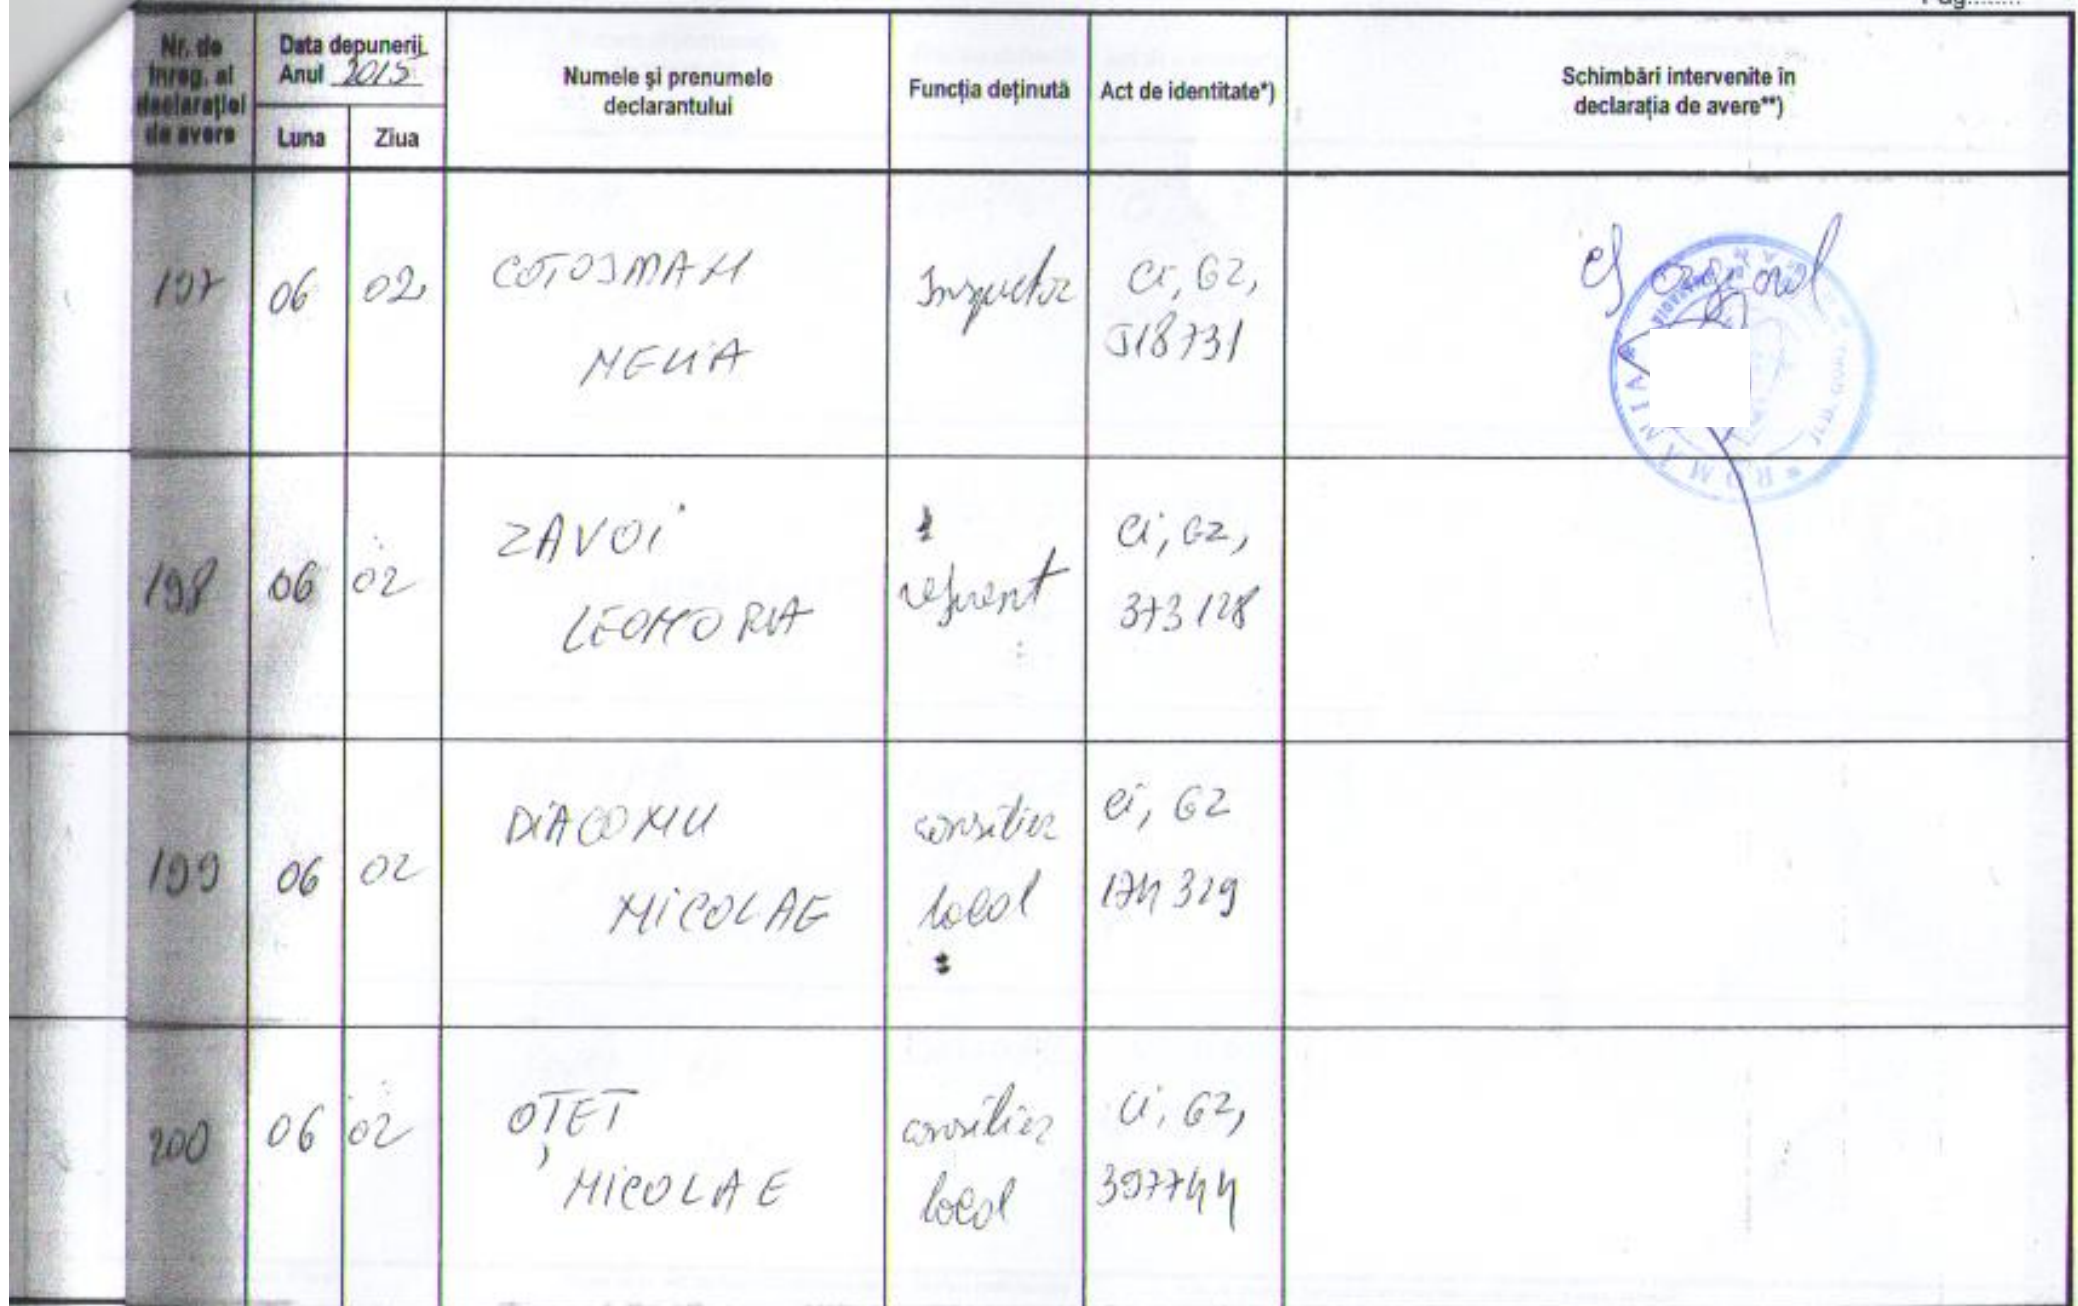 Pag........
Nr. de
înreg. al
declarației
de avere
Data depunerii
Anul 2015
Luna
Ziua
Numele și prenumele
declarantului
Funcția deținută
Act de identitate*)
Schimbări intervenite în
declarația de avere**)
197
06
02
COTOSMAN
NELIA
Inspector
Ci, GZ,
318731
cf original
ROMÂNIA
198
06
02
ZAVOI
LEONORIA
referent
Ci, GZ,
373128
199
06
02
DIACONU
NICOLAE
consilier
local
Ci, GZ
174329
200
06
02
OȚET
NICOLAE
consilier
local
Ci, GZ,
397744